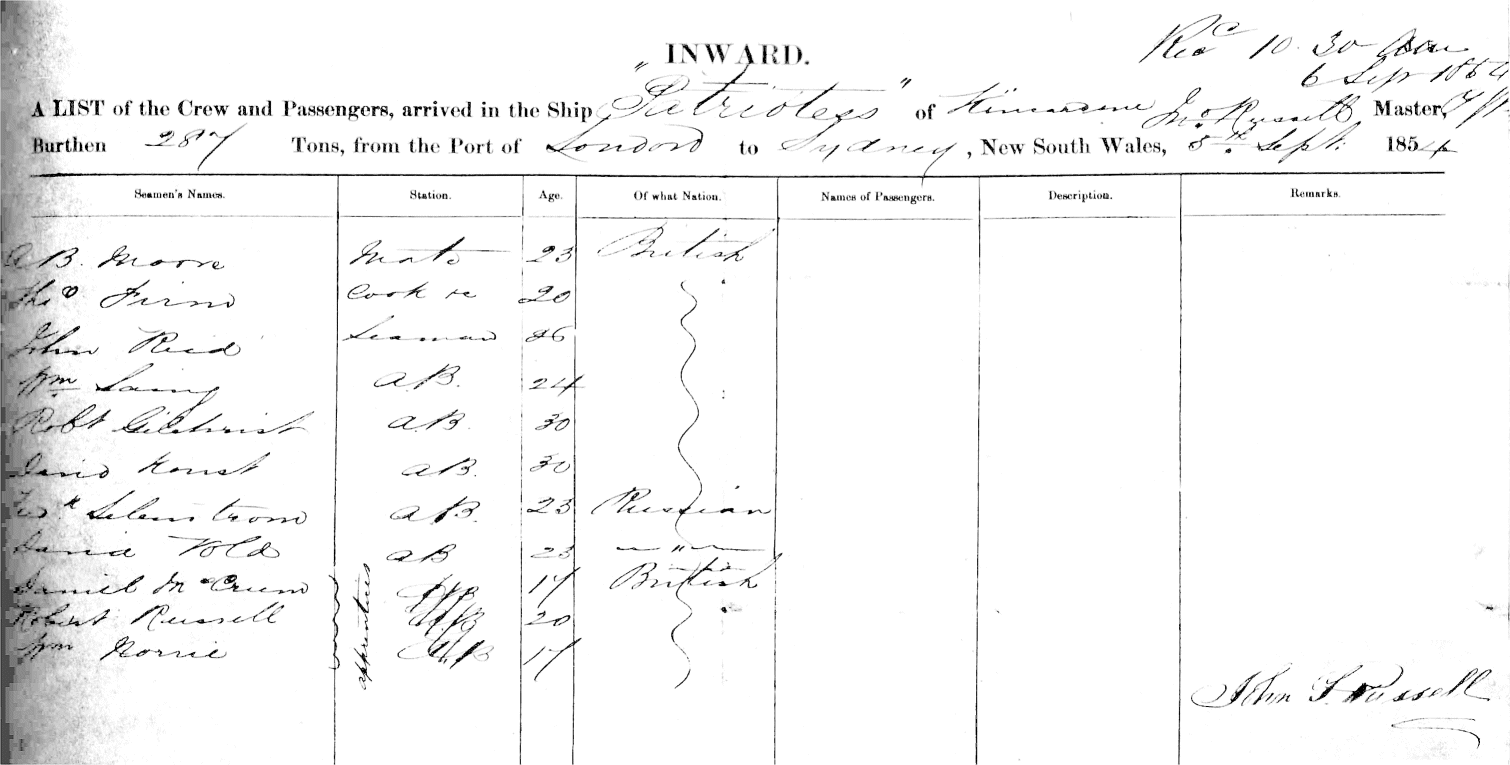 INWARD.
Recd 10.30
6 Sep 1854
A LIST of the Crew and Passengers, arrived in the Ship "Patriotess" of Kincardine Jno Russell Master,
Burthen 287 Tons, from the Port of London to Sydney, New South Wales, 5th Sept. 1854
Seamen's Names. Station. Age. Of what Nation. Names of Passengers. Description. Remarks.
A B. Moore Mate 23 British
Thos Cook &c 20
John Reid Seaman 26
Wm Laing AB. 24
Robt Gilchrist A.B. 30
David AB. 30
AB. 23 Russian
David Vold AB 23 — " —
Daniel McCrum apprentices 17 British
Robert Russell 20
Wm Norrie 17
John T. Russell